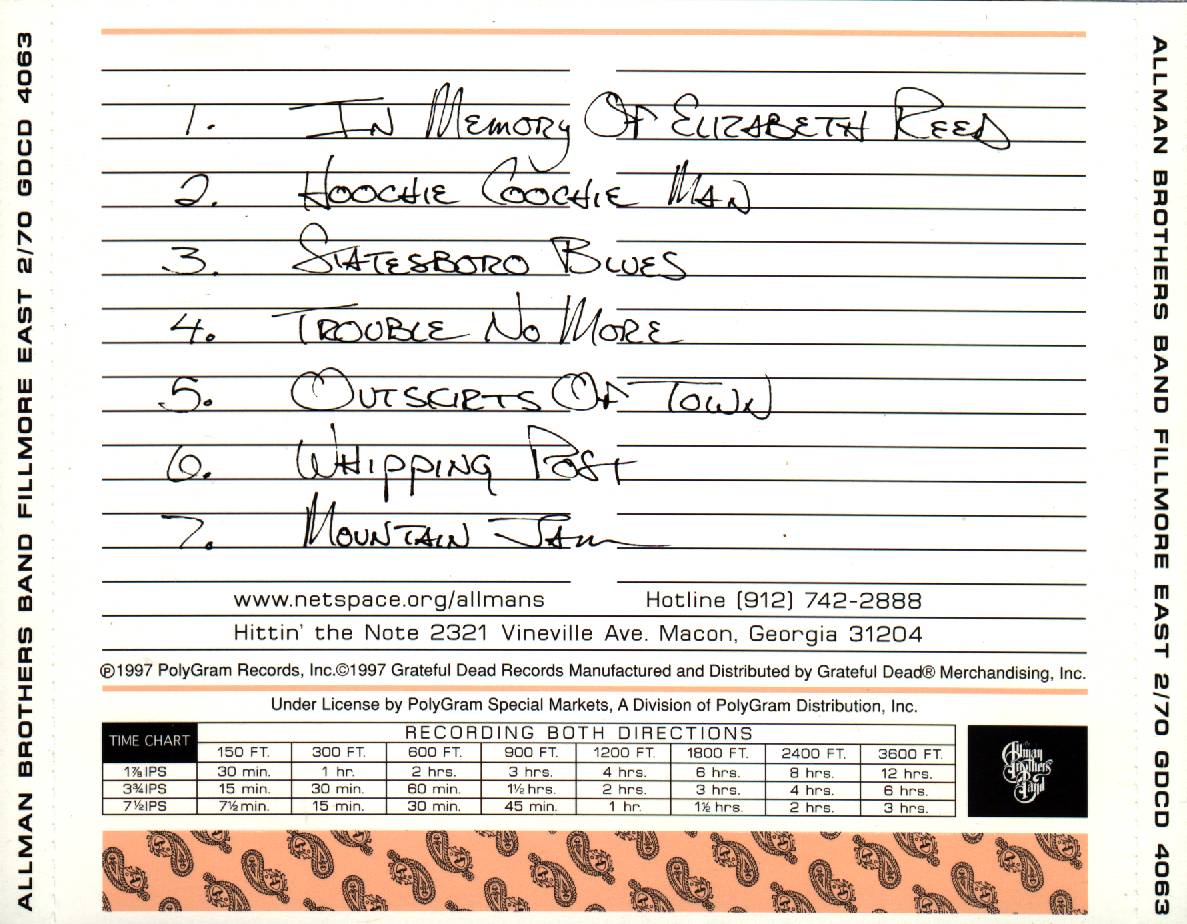 ALLMAN BROTHERS BAND FILLMORE EAST 2/70 GDCD 4063
1. IN MEMORY OF ELIZABETH REED
2. HOOCHIE COOCHIE MAN
3. STATESBORO BLUES
4. TROUBLE NO MORE
5. OUTSKIRTS OF TOWN
6. WHIPPING POST
7. MOUNTAIN JAM
www.netspace.org/allmans Hotline (912) 742-2888
Hittin' the Note 2321 Vineville Ave. Macon, Georgia 31204
℗1997 PolyGram Records, Inc.©1997 Grateful Dead Records Manufactured and Distributed by Grateful Dead® Merchandising, Inc.
Under License by PolyGram Special Markets, A Division of PolyGram Distribution, Inc.
TIME CHART RECORDING BOTH DIRECTIONS
150 FT. 300 FT. 600 FT. 900 FT. 1200 FT. 1800 FT. 2400 FT. 3600 FT.
1⅞ IPS 30 min. 1 hr. 2 hrs. 3 hrs. 4 hrs. 6 hrs. 8 hrs. 12 hrs.
3¾ IPS 15 min. 30 min. 60 min. 1½ hrs. 2 hrs. 3 hrs. 4 hrs. 6 hrs.
7½ IPS 7½ min. 15 min. 30 min. 45 min. 1 hr. 1½ hrs. 2 hrs. 3 hrs.
Allman
Brothers
Band
ALLMAN BROTHERS BAND FILLMORE EAST 2/70 GDCD 4063